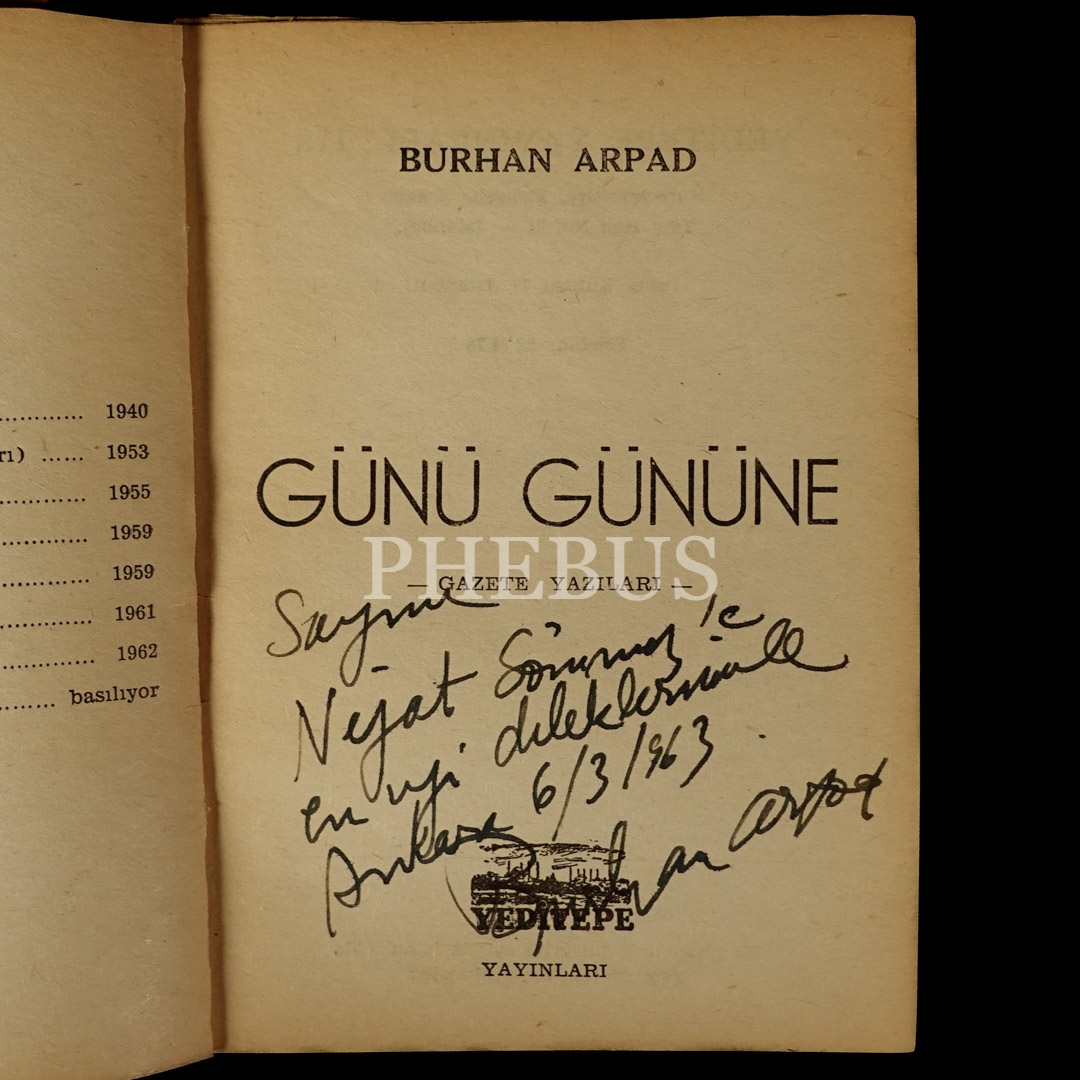 ............ 1940
rı) ...... 1953
............ 1955
............ 1959
............ 1959
............ 1961
............ 1962
........ basılıyor
BURHAN ARPAD
GÜNÜ GÜNÜNE
PHEBUS
— GAZETE YAZILARI —
Sayın
Nejat Sönmez'e
en iyi dileklerimle
Ankara 6/3/963
Burhan Arpad
YEDİTEPE
YAYINLARI